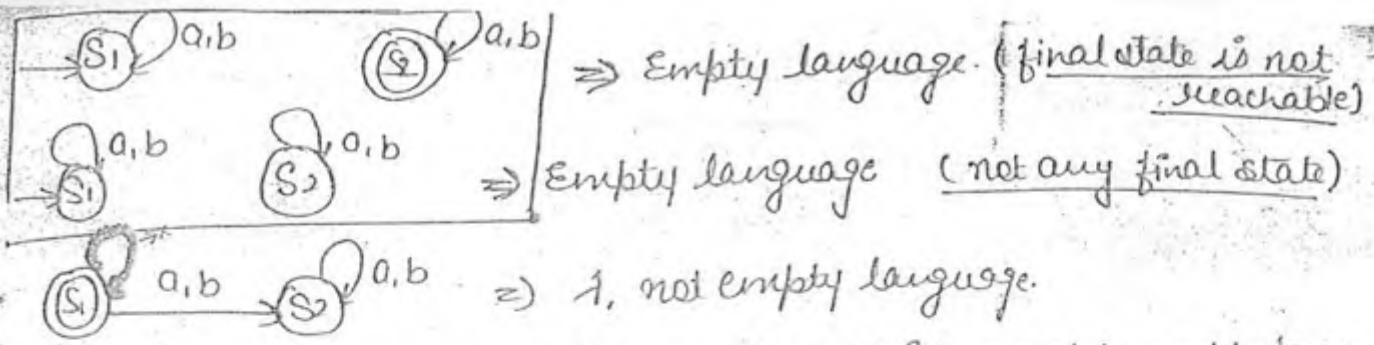 S1 a,b S2 a,b => Empty language. (final state is not
reachable)
S1 a,b S2 a,b => Empty language (not any final state)
S1 a,b S2 a,b => λ, not empty language.